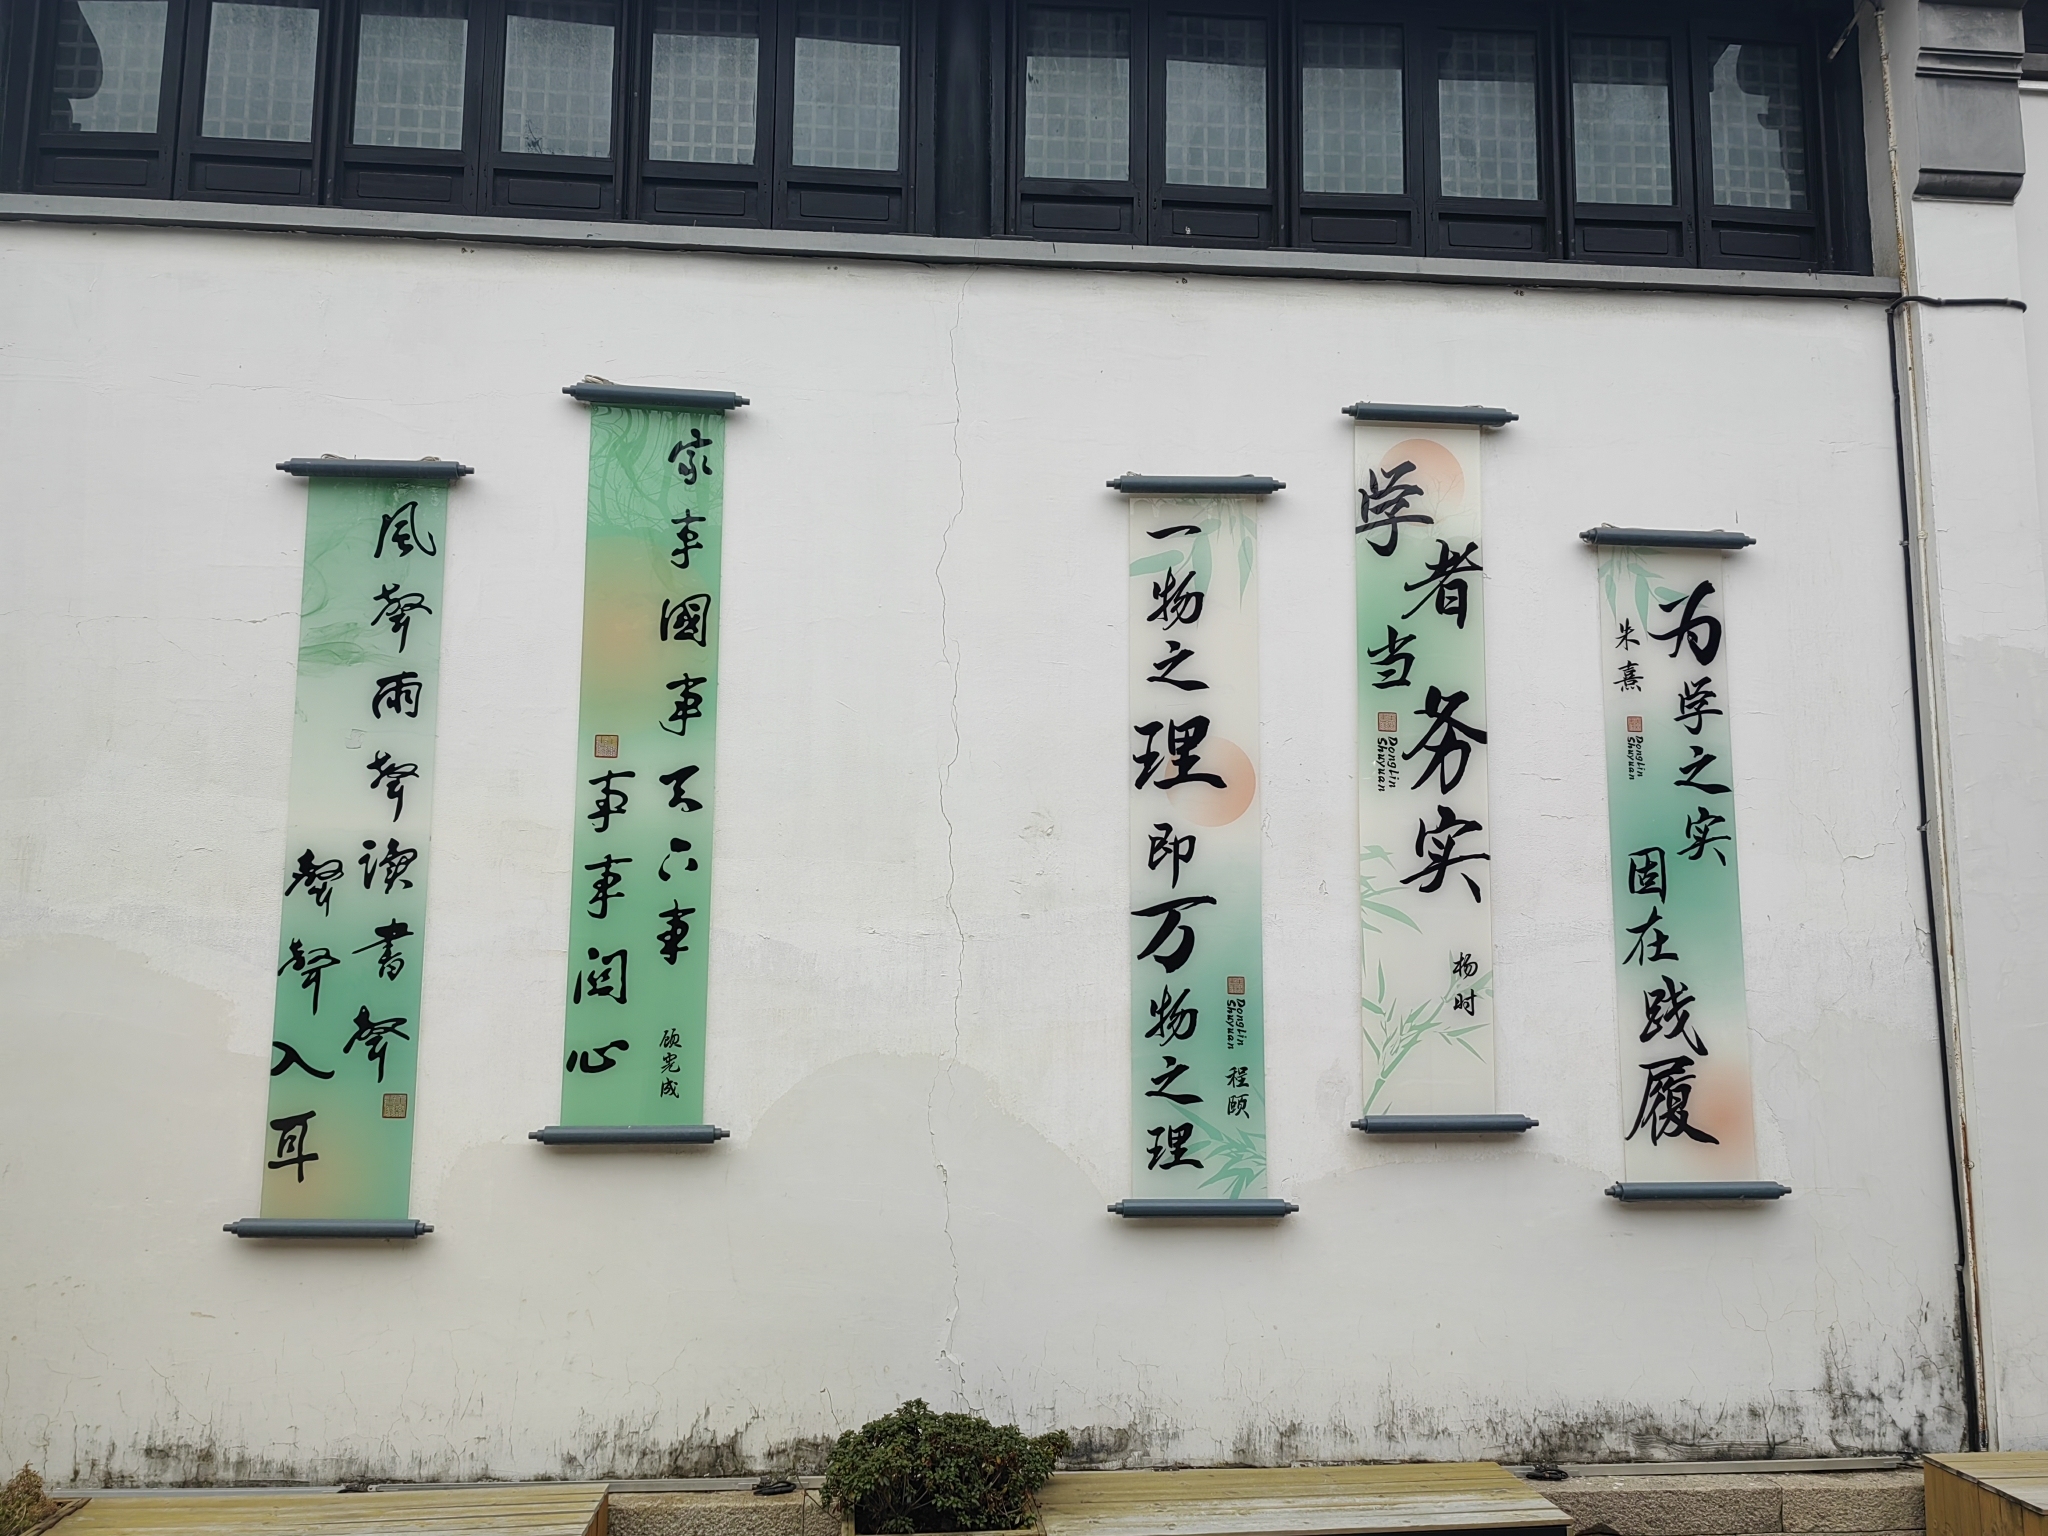 風聲雨聲讀書聲
聲聲入耳
家事國事天下事
事事関心
顾宪成
一物之理即万物之理
程颐
Donglin
Shuyuan
学者当务实
杨时
Donglin
Shuyuan
为学之实
固在践履
朱熹
Donglin
Shuyuan